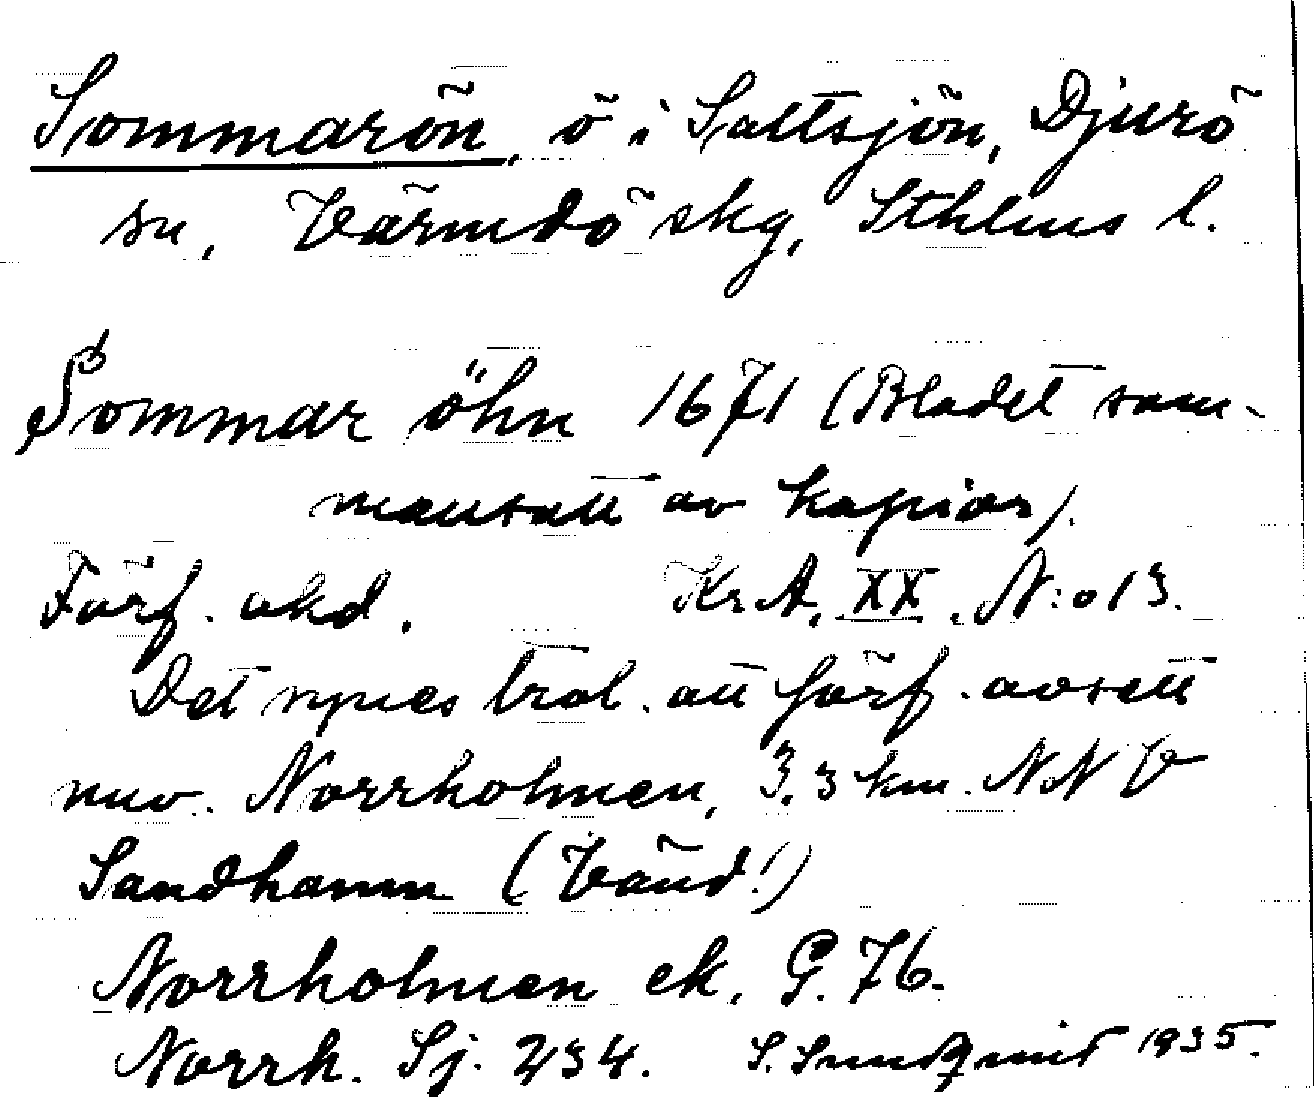 Sommarön, ö i Saltsjön, Djurö
sn, Värmdö skg, Sthlms l.
Sommar öhn 1671 (Bladet sam-
mansatt av kopior).
Förf. okd. Kr.A. XX. N:o 13.
Det synes trol. att förf. avsett
nuv. Norrholmen, 3,3 km. NNV
Sandhamn (Vänd!)
Norrholmen ek. G. 76.
Norrh. Sj. 234. S. Sundqvist 1935.